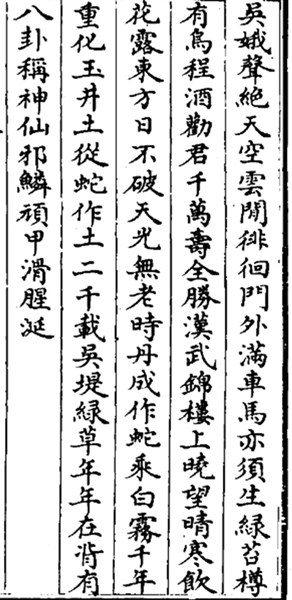 吳娥聲絶天空雲閒徘徊門外滿車馬亦須生緑苔樽
有烏程酒勸君千萬壽全勝漢武錦樓上曉望晴寒飲
花露東方日不破天光無老時丹成作蛇乘白霧千年
重化玉井土從蛇作土二千載吳堤緑草年年在背有
八卦稱神仙邪鱗頑甲滑腥涎